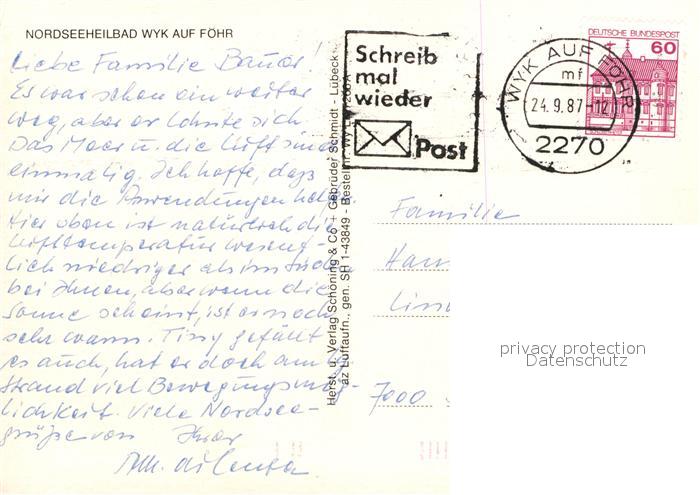 NORDSEEHEILBAD WYK AUF FÖHR
Liebe Familie Bauer!
Es war schon ein weiter
Weg, aber er lohnte sich.
Das Meer u. die Luft sind
einmalig. Ich hoffe, daß
mir die Anwendungen helfen.
Hier oben ist natürlich die
Lufttemperatur wesent-
lich niedriger als im Süden
bei Ihnen, aber wenn die
Sonne scheint, ist es noch
sehr warm. Tiny gefällt
es auch, hat er doch am
Strand viel Bewegungsmög-
lichkeit. Viele Nordsee-
grüße von Ihrer
Herst. u. Verlag Schöning & Co + Gebrüder Schmidt - Lübeck
az Luftaufn., gen. SH 1-43849 - Bestell-Nr. Wy
Schreib
mal
wieder
Post
WYK AUF FÖHR
mf
24.9.87-12
2270
DEUTSCHE BUNDESPOST
60
Familie
7000
privacy protection
Datenschutz